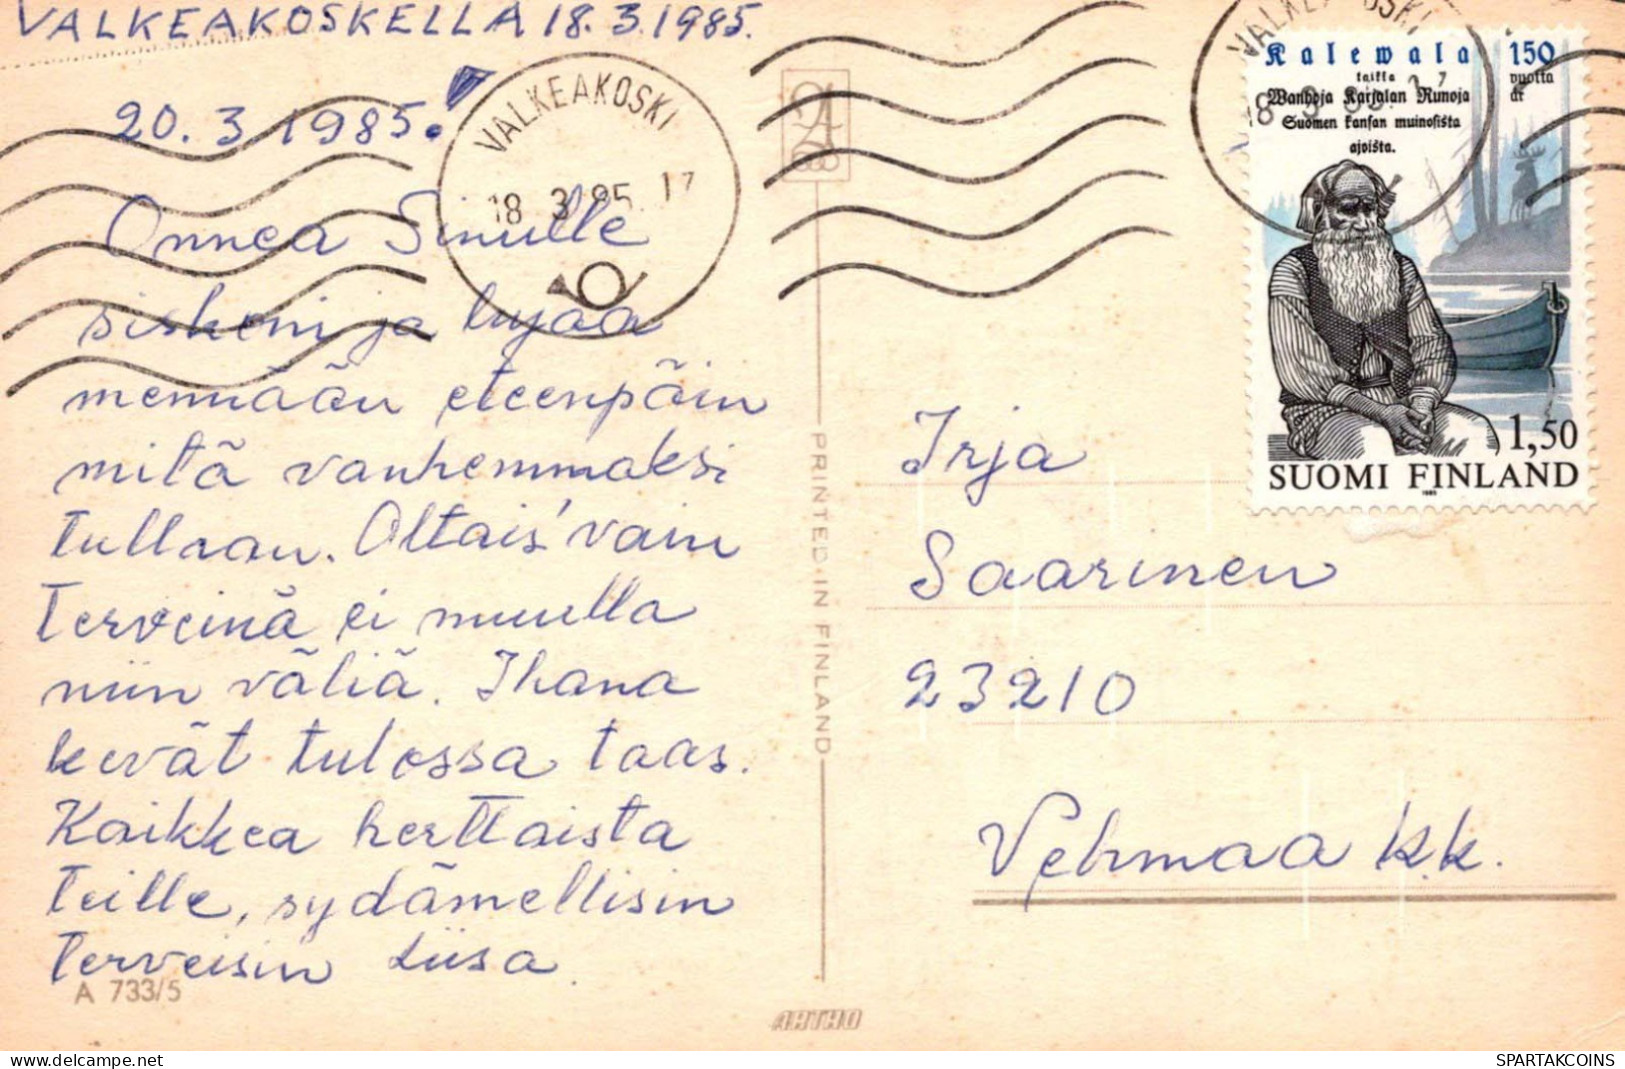 VALKEAKOSKELLA 18.3.1985.
20.3.1985.
VALKEAKOSKI
18 3 85. 17
Onnea Sinulle
siskoni ja lujaa
mennään eteenpäin
mitä vanhemmaksi
tullaan. Oltais' vain
Terveinä ei muulla
niin väliä. Ihana
kevät tulossa taas.
Kaikkea herttaista
Teille, sydämellisin
terveisin Liisa
A 733/5
PRINTED IN FINLAND
ARTKO
VALKEAKOSKI
Kalewala
taikka
Wanhoja Karjalan Runoja
Suomen kansan muinosista
ajoista.
150
vuotta
år
1,50
SUOMI FINLAND
1985
Irja
Saarinen
23210
Vehmaa k.k.
www.delcampe.net
SPARTAKCOINS